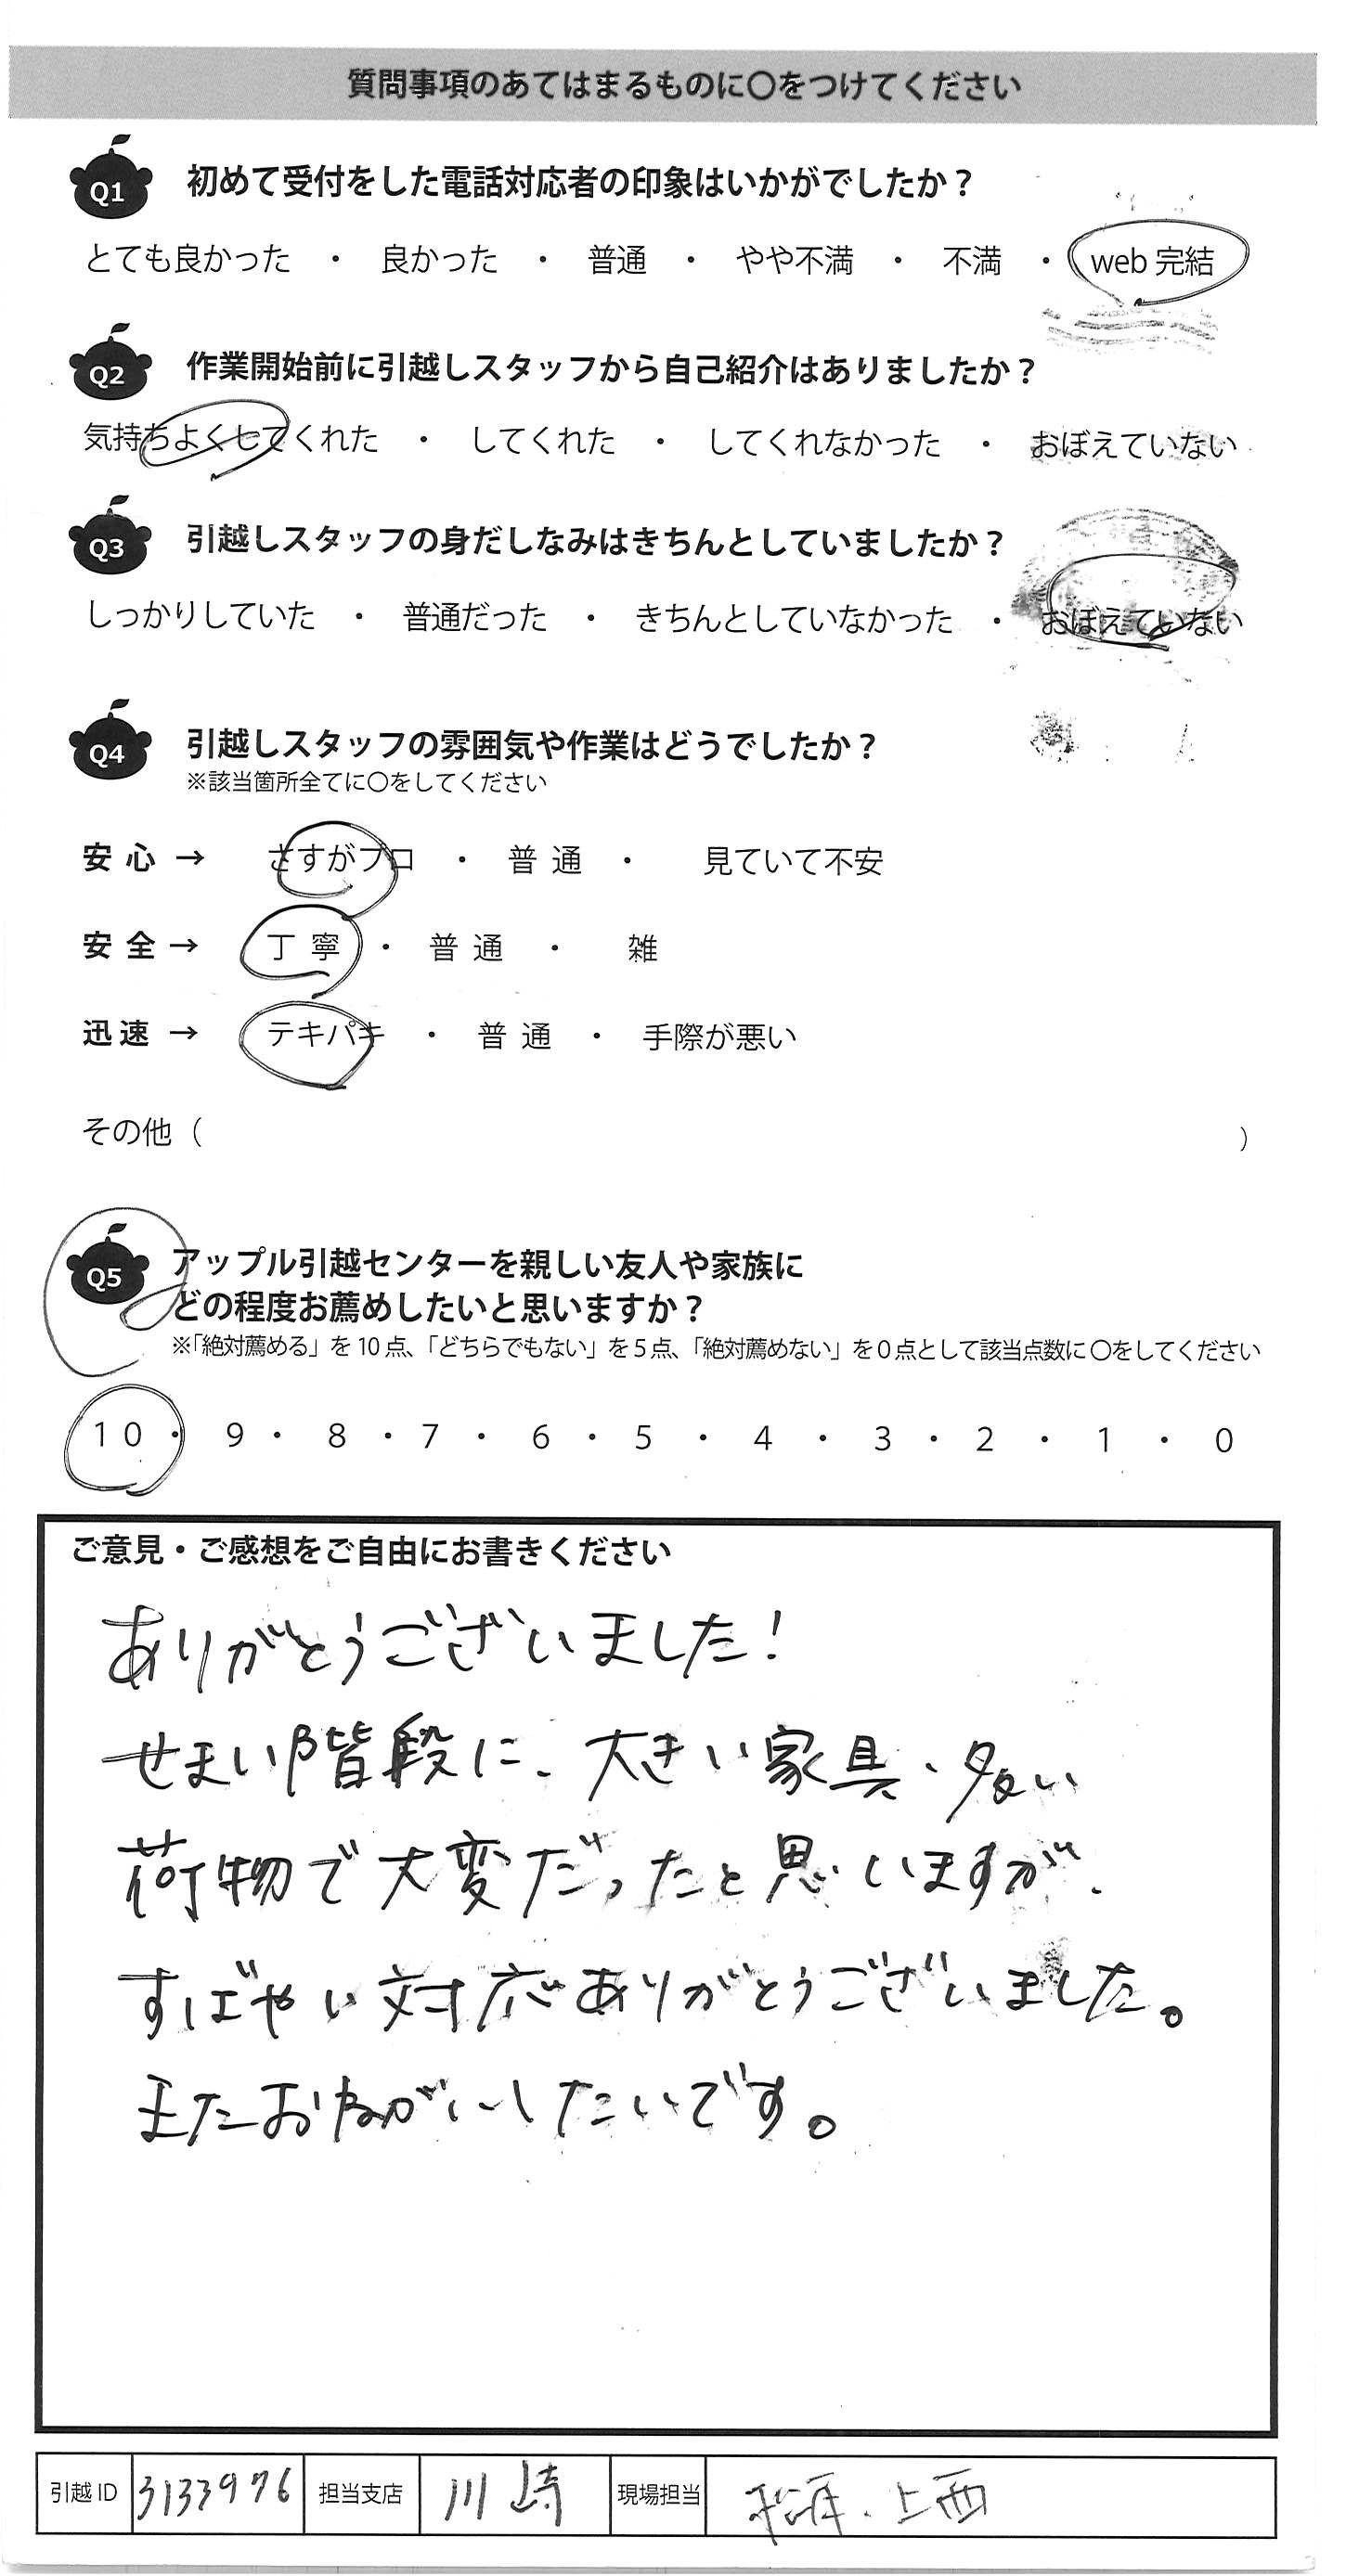 質問事項のあてはまるものに〇をつけてください
Q1 初めて受付をした電話対応者の印象はいかがでしたか？
とても良かった ・ 良かった ・ 普通 ・ やや不満 ・ 不満 ・ web 完結
Q2 作業開始前に引越しスタッフから自己紹介はありましたか？
気持ちよくしてくれた ・ してくれた ・ してくれなかった ・ おぼえていない
Q3 引越しスタッフの身だしなみはきちんとしていましたか？
しっかりしていた ・ 普通だった ・ きちんとしていなかった ・ おぼえていない
Q4 引越しスタッフの雰囲気や作業はどうでしたか？
※該当箇所全てに〇をしてください
安心 → さすがプロ ・ 普通 ・ 見ていて不安
安全 → 丁寧 ・ 普通 ・ 雑
迅速 → テキパキ ・ 普通 ・ 手際が悪い
その他（ ）
Q5 アップル引越センターを親しい友人や家族に
どの程度お薦めしたいと思いますか？
※「絶対薦める」を10点、「どちらでもない」を5点、「絶対薦めない」を0点として該当点数に〇をしてください
10 ・ 9 ・ 8 ・ 7 ・ 6 ・ 5 ・ 4 ・ 3 ・ 2 ・ 1 ・ 0
ご意見・ご感想をご自由にお書きください
ありがとうございました！
せまい階段に、大きい家具、多い
荷物で大変だったと思いますが、
すばやい対応ありがとうございました。
またおねがいしたいです。
引越ID 3133976 担当支店 川崎 現場担当 上西